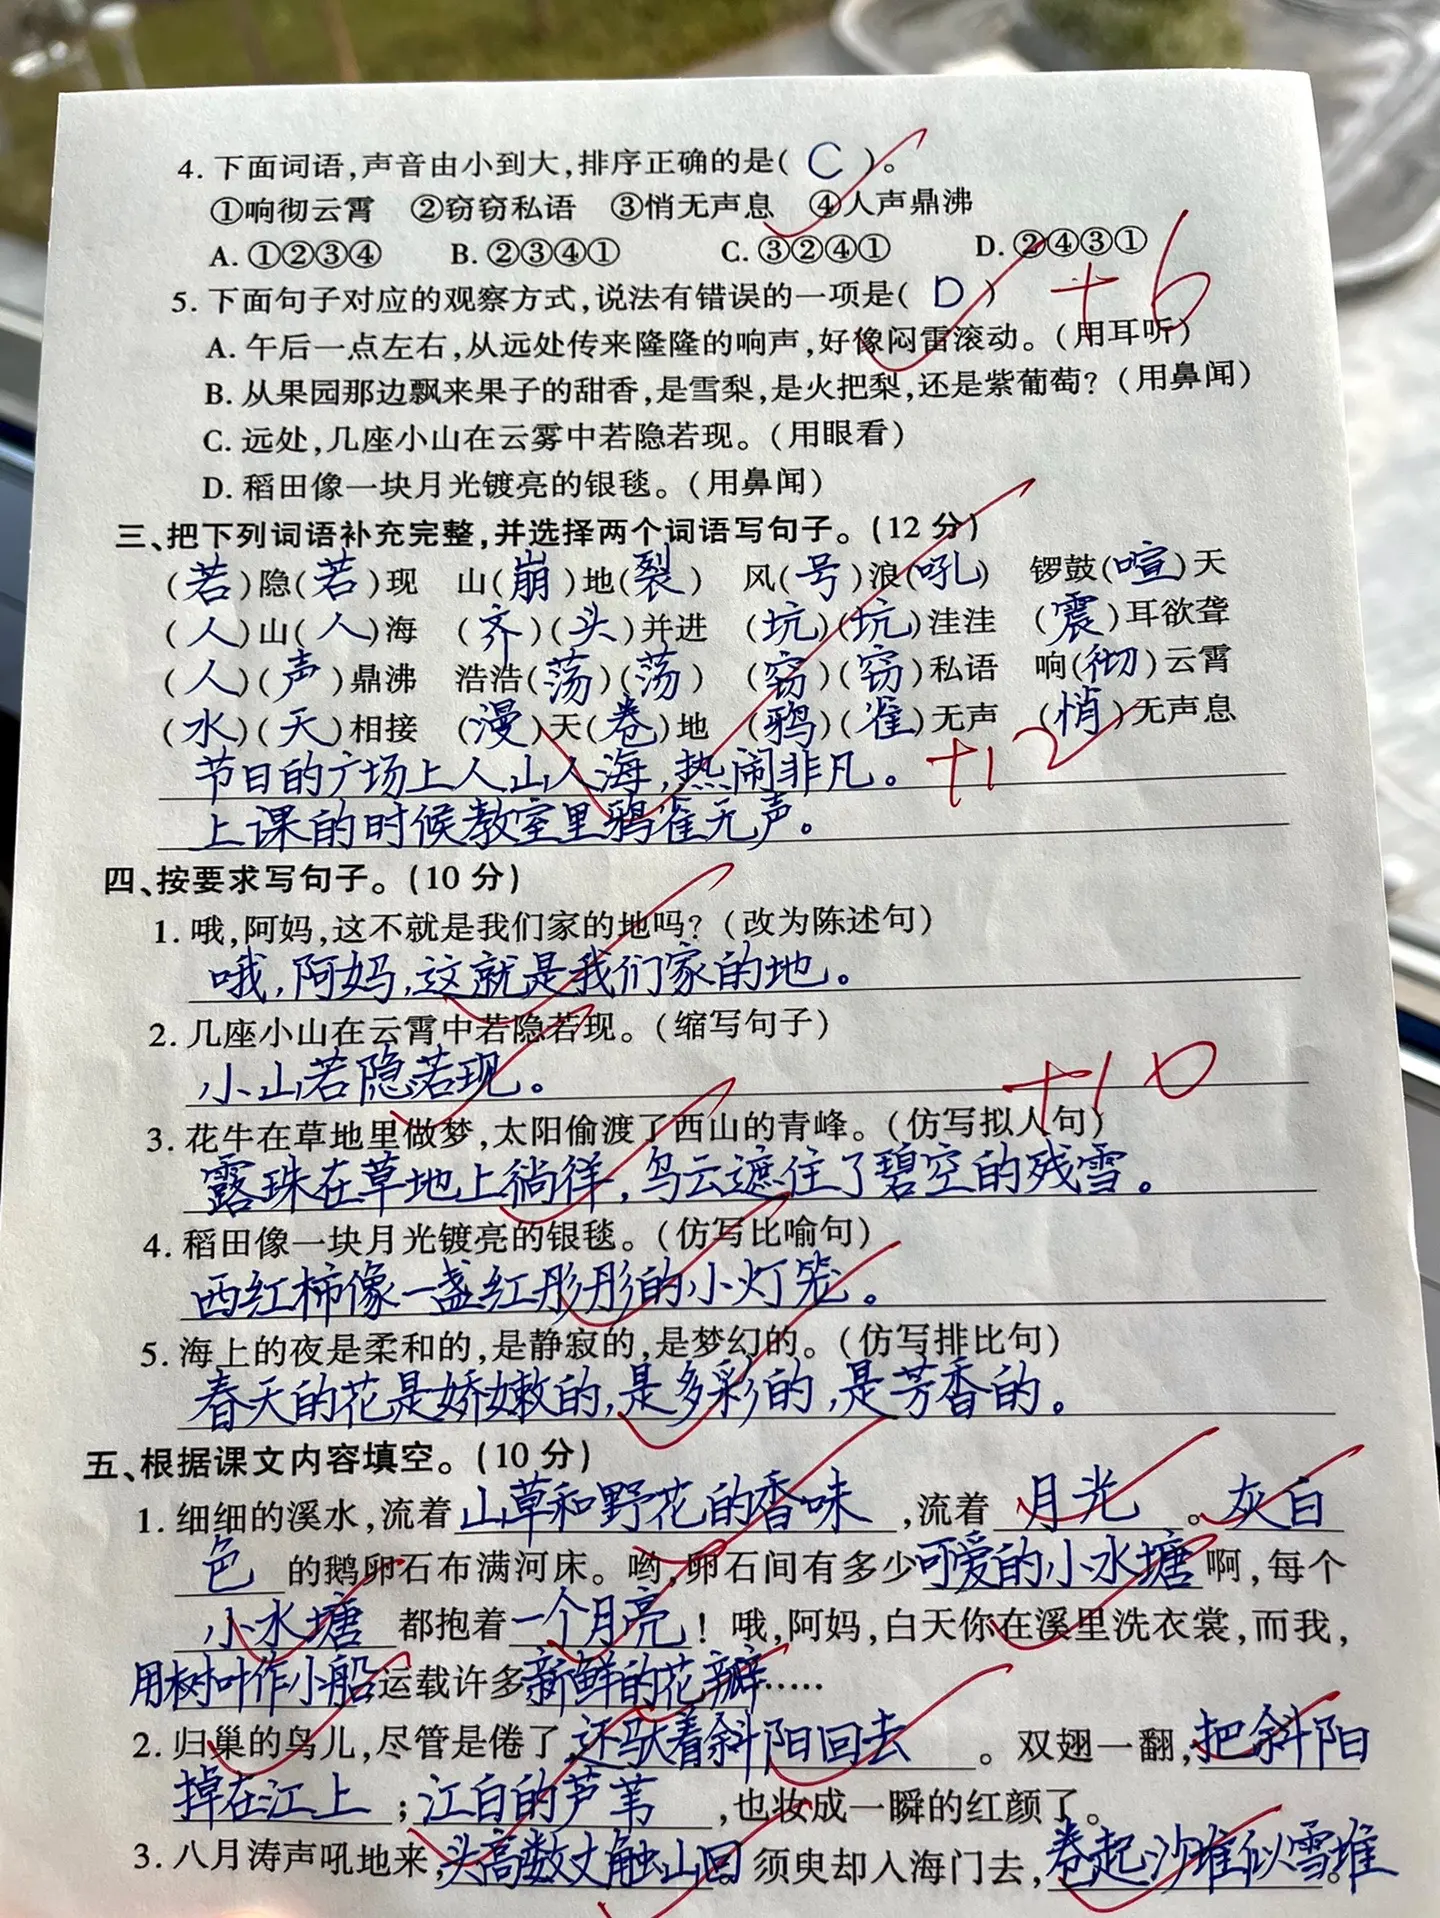 4. 下面词语,声音由小到大,排序正确的是( C )。
①响彻云霄 ②窃窃私语 ③悄无声息 ④人声鼎沸
A. ①②③④ B. ②③④① C. ③②④① D. ②④③①
+6
5. 下面句子对应的观察方式,说法有错误的一项是( D )
A. 午后一点左右,从远处传来隆隆的响声,好像闷雷滚动。(用耳听)
B. 从果园那边飘来果子的甜香,是雪梨,是火把梨,还是紫葡萄?(用鼻闻)
C. 远处,几座小山在云雾中若隐若现。(用眼看)
D. 稻田像一块月光镀亮的银毯。(用鼻闻)
三、把下列词语补充完整,并选择两个词语写句子。(12 分)
(若)隐(若)现 山(崩)地(裂) 风(号)浪(吼) 锣鼓(喧)天
(人)山(人)海 (齐)(头)并进 (坑)(坑)洼洼 (震)耳欲聋
(人)(声)鼎沸 浩浩(荡)(荡) (窃)(窃)私语 响(彻)云霄
(水)(天)相接 (漫)天(卷)地 (鸦)(雀)无声 (悄)无声息
节日的广场上人山人海,热闹非凡。 +12
上课的时候教室里鸦雀无声。
四、按要求写句子。(10 分)
1. 哦,阿妈,这不就是我们家的地吗?(改为陈述句)
哦,阿妈,这就是我们家的地。
2. 几座小山在云霄中若隐若现。(缩写句子)
小山若隐若现。 +10
3. 花牛在草地里做梦,太阳偷渡了西山的青峰。(仿写拟人句)
露珠在草地上徜徉,乌云遮住了碧空的残雪。
4. 稻田像一块月光镀亮的银毯。(仿写比喻句)
西红柿像一盏红彤彤的小灯笼。
5. 海上的夜是柔和的,是静寂的,是梦幻的。(仿写排比句)
春天的花是娇嫩的,是多彩的,是芳香的。
五、根据课文内容填空。(10 分)
1. 细细的溪水,流着山草和野花的香味,流着月光。灰白
色的鹅卵石布满河床。哟,卵石间有多少可爱的小水塘啊,每个
小水塘都抱着一个月亮!哦,阿妈,白天你在溪里洗衣裳,而我,
用树叶作小船,运载许多新鲜的花瓣……
2. 归巢的鸟儿,尽管是倦了,还驮着斜阳回去。双翅一翻,把斜阳
掉在江上;江白的芦苇,也妆成一瞬的红颜了。
3. 八月涛声吼地来,头高数丈触山回。须臾却入海门去,卷起沙堆似雪堆。